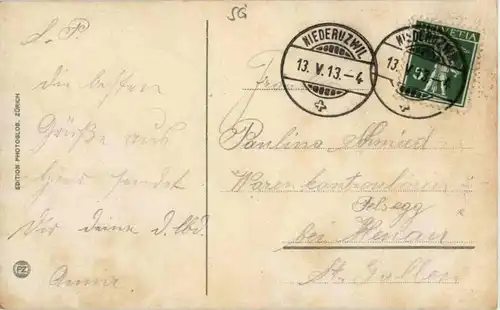 SG
L. P.
Die besten
Grüße aus
sendet
Dir deine d. lbd.
EDITION PHOTOGLOB, ZÜRICH
PZ
NIEDERUZWIL
13. V. 13. – 4
NIEDERUZWIL
13. V. 13. – 4
HELVETIA
Paulina Schmied
Warenkontrolleu
egg
bei Henau
St. Gallen